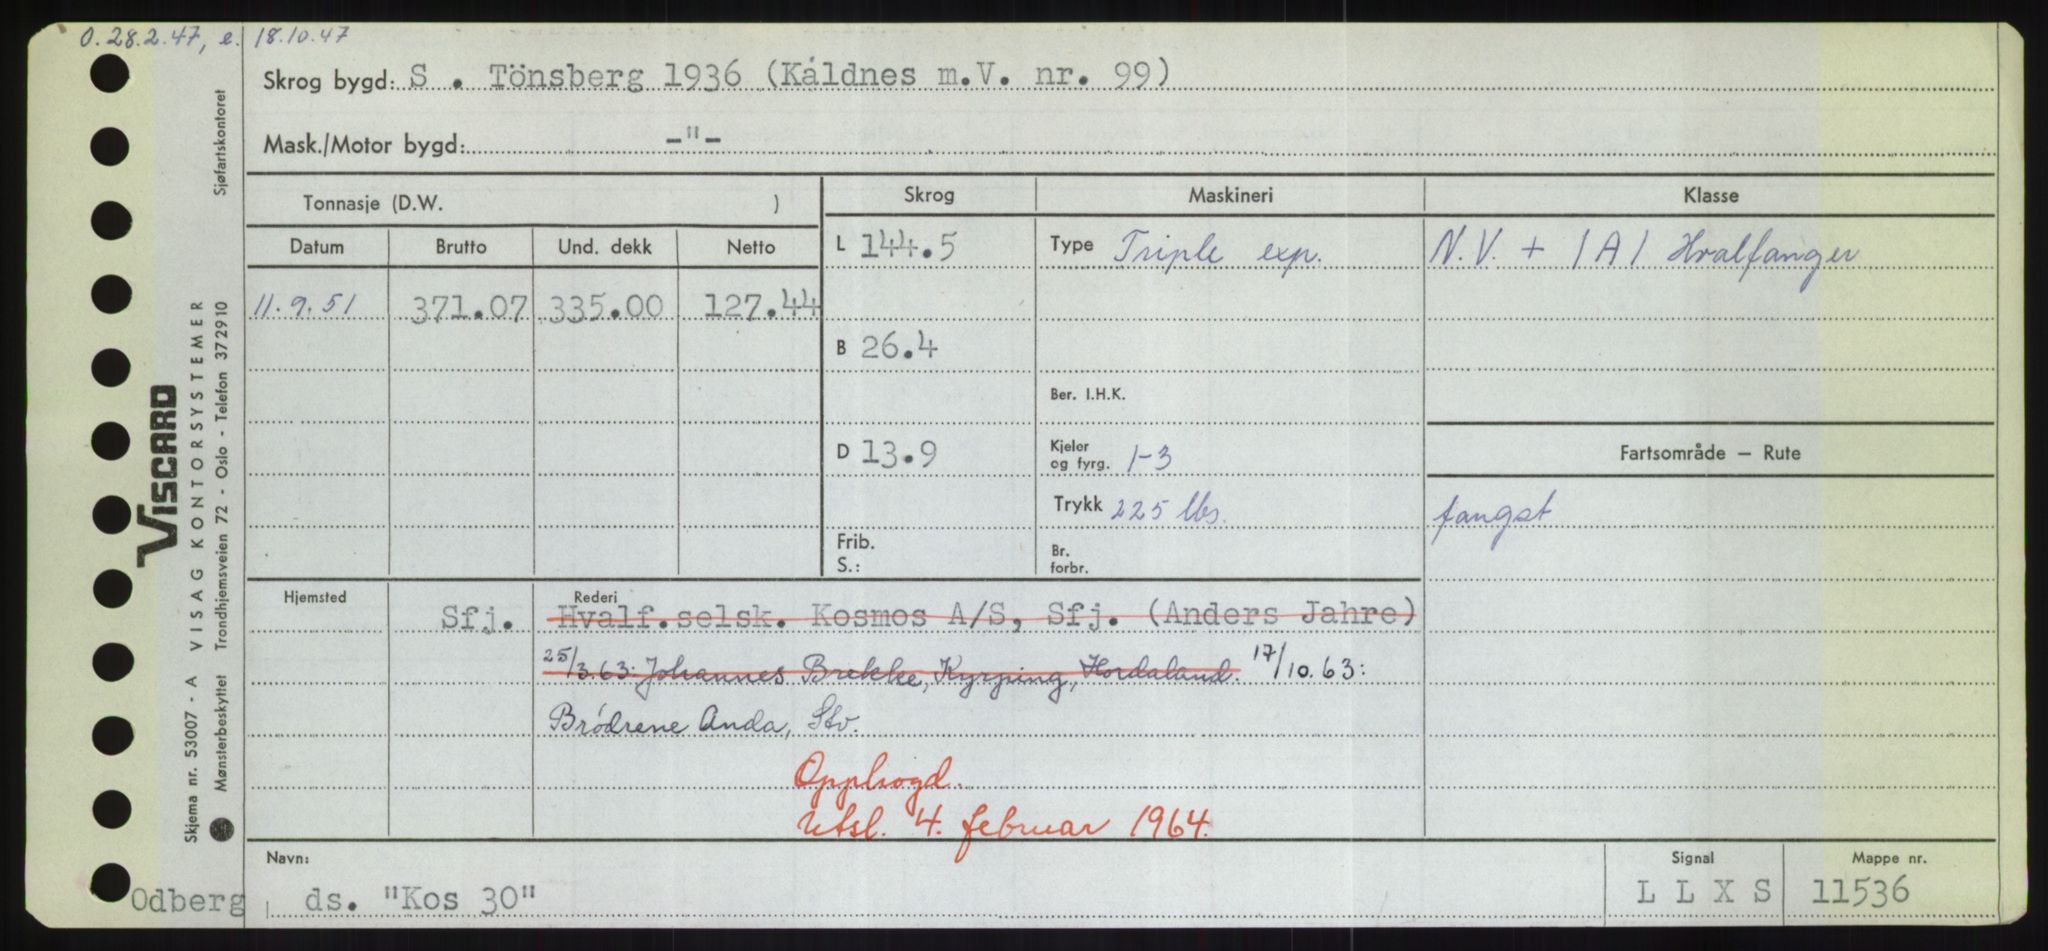 O. 28.2.47, e. 18.10.47
Skrog bygd: S . Tönsberg 1936 (Kåldnes m.V. nr. 99)
Mask./Motor bygd: -"-
Tonnasje (D.W. )
Skrog Maskineri Klasse
Datum Brutto Und. dekk Netto
L 144.5 Type Triple exp. N.V. + /A/ Hvalfanger
11.9.51 371.07 335.00 127.44
B 26.4
Ber. I.H.K.
D 13.9 Kjeler og fyrg. 1-3 Fartsområde — Rute
Trykk 225 lbs. fangst
Frib.
S.:
Br. forbr.
Hjemsted Rederi
Sfj. Hvalf.selsk. Kosmos A/S, Sfj. (Anders Jahre)
25/3.63: Johannes Brekke, Kyrping, Hordaland. 17/10.63:
Brödrene Anda, Stv.
Opphogd.
Utsl. 4. februar 1964.
Navn: Signal Mappe nr.
Odberg ds. "Kos 30" L L X S 11536
VISCARD
Skjema nr. 53007 - A VISAG KONTORSYSTEMER
Mønsterbeskyttet Trondhjemsveien 72 - Oslo - Telefon 372910 Sjøfartskontoret